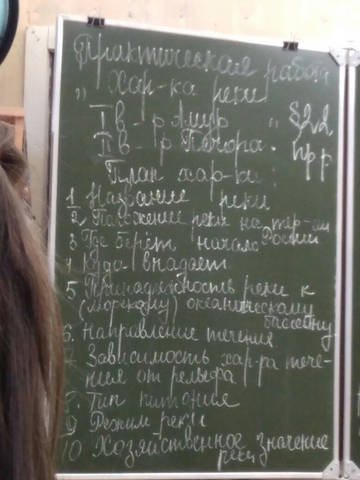 Практическая работа
„ Хар-ка реки
I в - р Амур " §22
II в - р Печора. пр р
План хар-ки:
1 Название реки
2 Положение реки на тер-ии России
3 Где берёт начало
4 Куда впадает
5 Принадлежность реки к
(морскому) океаническому
бассейну
6. Направление течения
7 Зависимость хар-ра тече-
ния от рельефа
8. Тип питания
9 Режим реки
10 Хозяйственное значение
реки